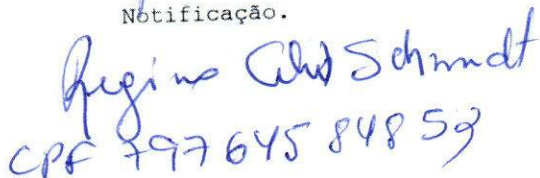 Notificação.
Regina Schmidt
CPF 797645848 59